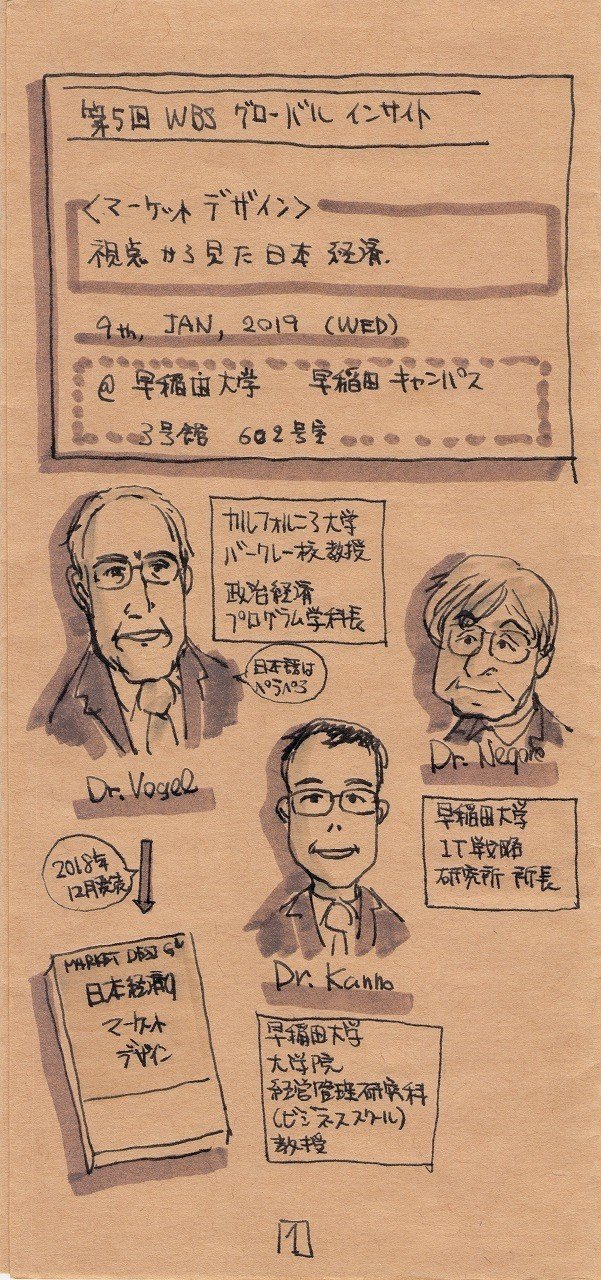 第5回 WBS グローバル インサイト
〈マーケット デザイン〉
視点から見た日本経済.
9th, JAN, 2019 (WED)
@ 早稲田大学 早稲田キャンパス
3号館 602号室
カルフォルニア大学
バークレー核教授
政治経済
プログラム学科長
日本語は
ペラペラ
Dr. Vogel
Dr. Negoro
早稲田大学
IT戦略
研究所 所長
2018年
12月発表
MARKET DESIGN
日本経済の
マーケット
デザイン
Dr. Kanno
早稲田大学
大学院
経営管理研究科
(ビジネススクール)
教授
1